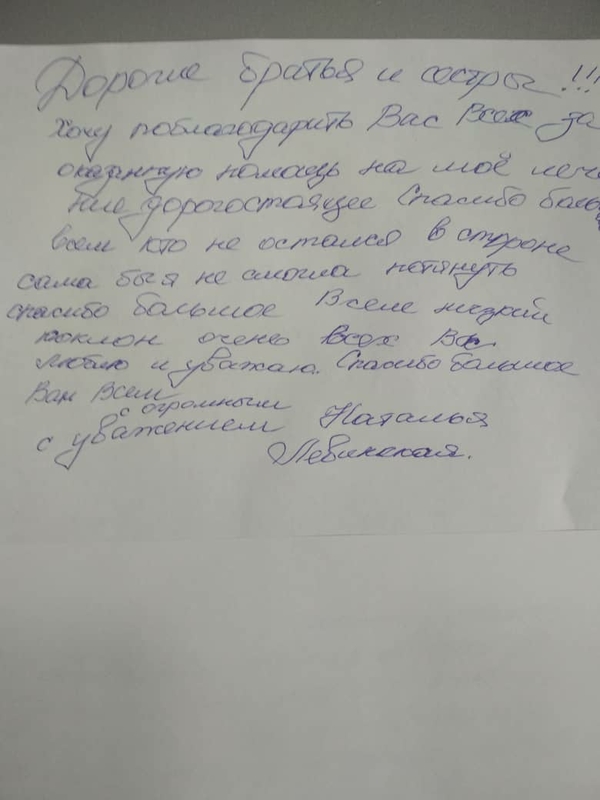 Дорогие братья и сестры!!!
Хочу поблагодарить Вас Всех за
оказанную помощь на моё лече
ние дорогостоящее Спасибо боль
всем кто не остался в стороне
сама бы я не смогла потянуть
спасибо большое Всем низкий
поклон очень всех Вас
люблю и уважаю. Спасибо большое
Вам Всем
с огромным
с уважением Наталья
Левинская.